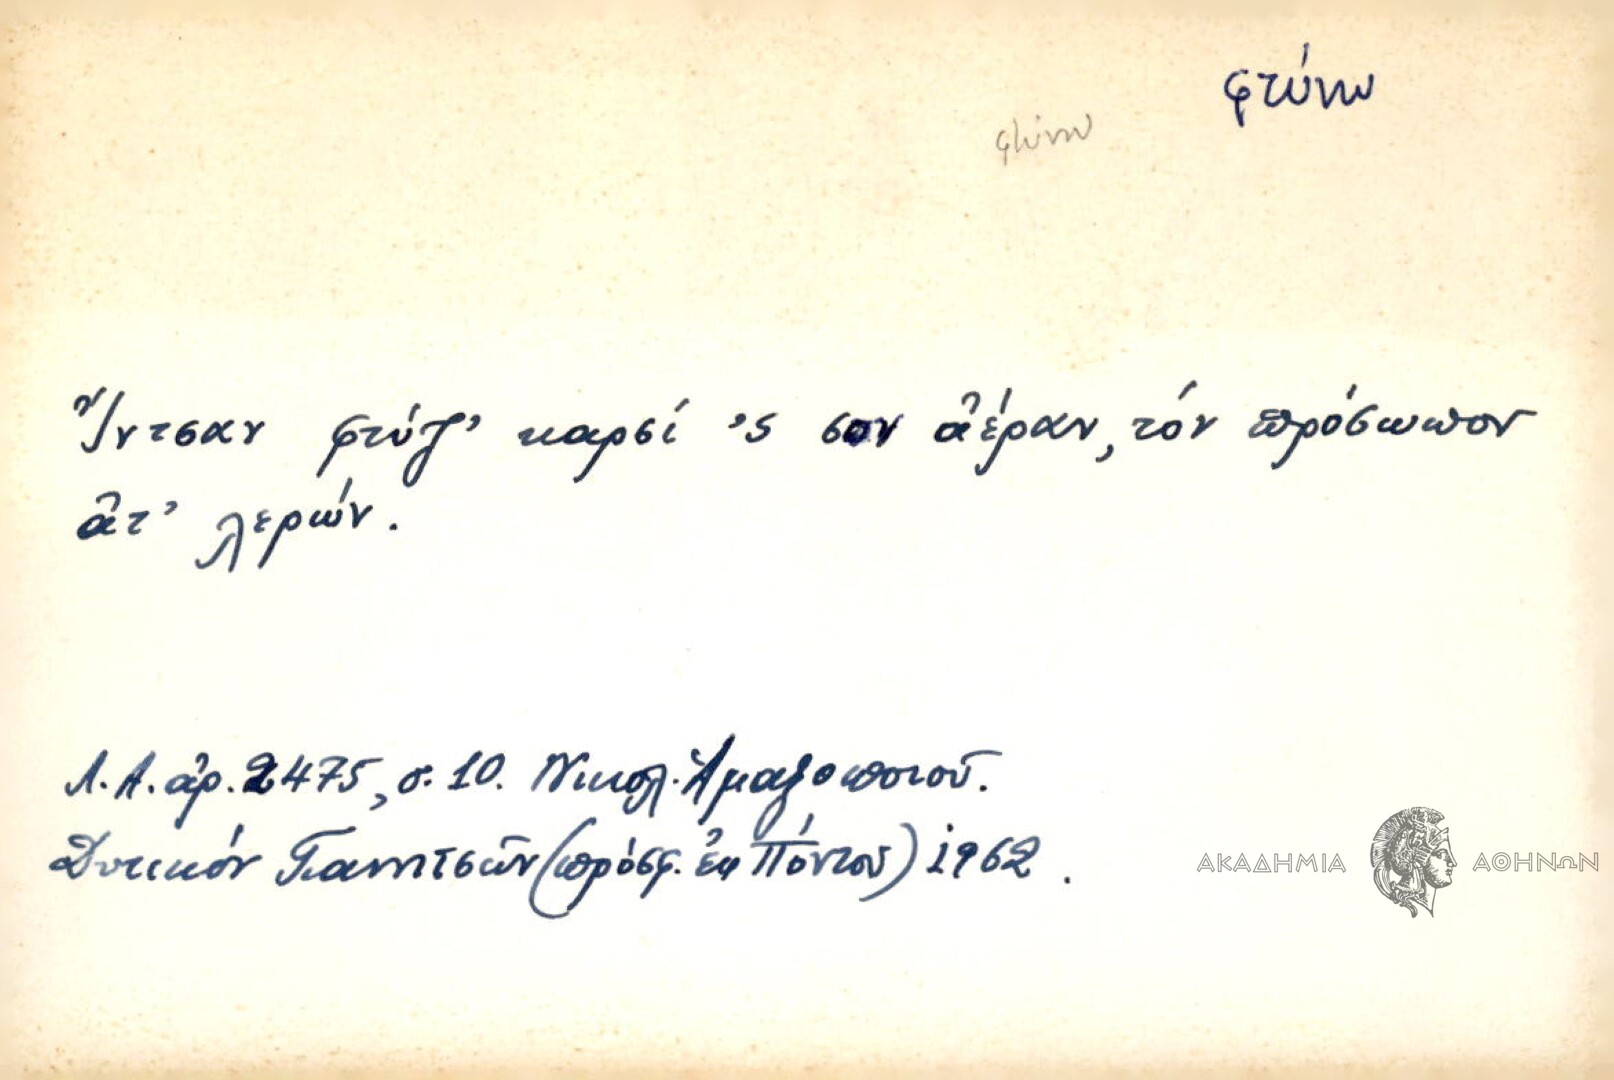 φτύνω
φτύνω
Ἴντσαν φτύζ' καρσί 'ς σον ἀέραν, τόν πρόσωπον
ἀτ' λερών.
Λ.Α. ἀρ. 2475, σ. 10. Νικολ. Ἁμαξοποιοῦ.
Δυτικόν Γιαννιτσῶν (πρόσφ. ἐκ Πόντου) 1962.
ΑΚΑΔΗΜΙΑ ΑΘΗΝΩΝ